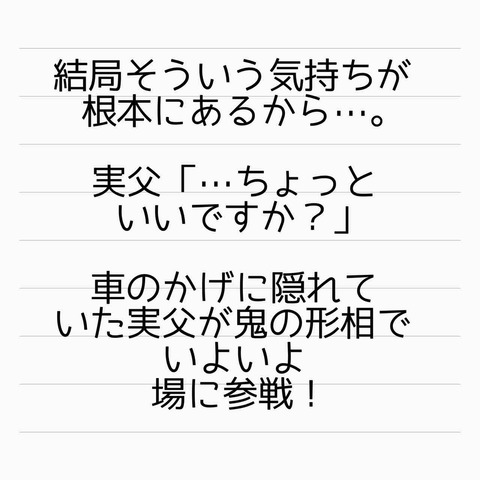 結局そういう気持ちが
根本にあるから…。
実父「…ちょっと
いいですか？」
車のかげに隠れて
いた実父が鬼の形相で
いよいよ
場に参戦！